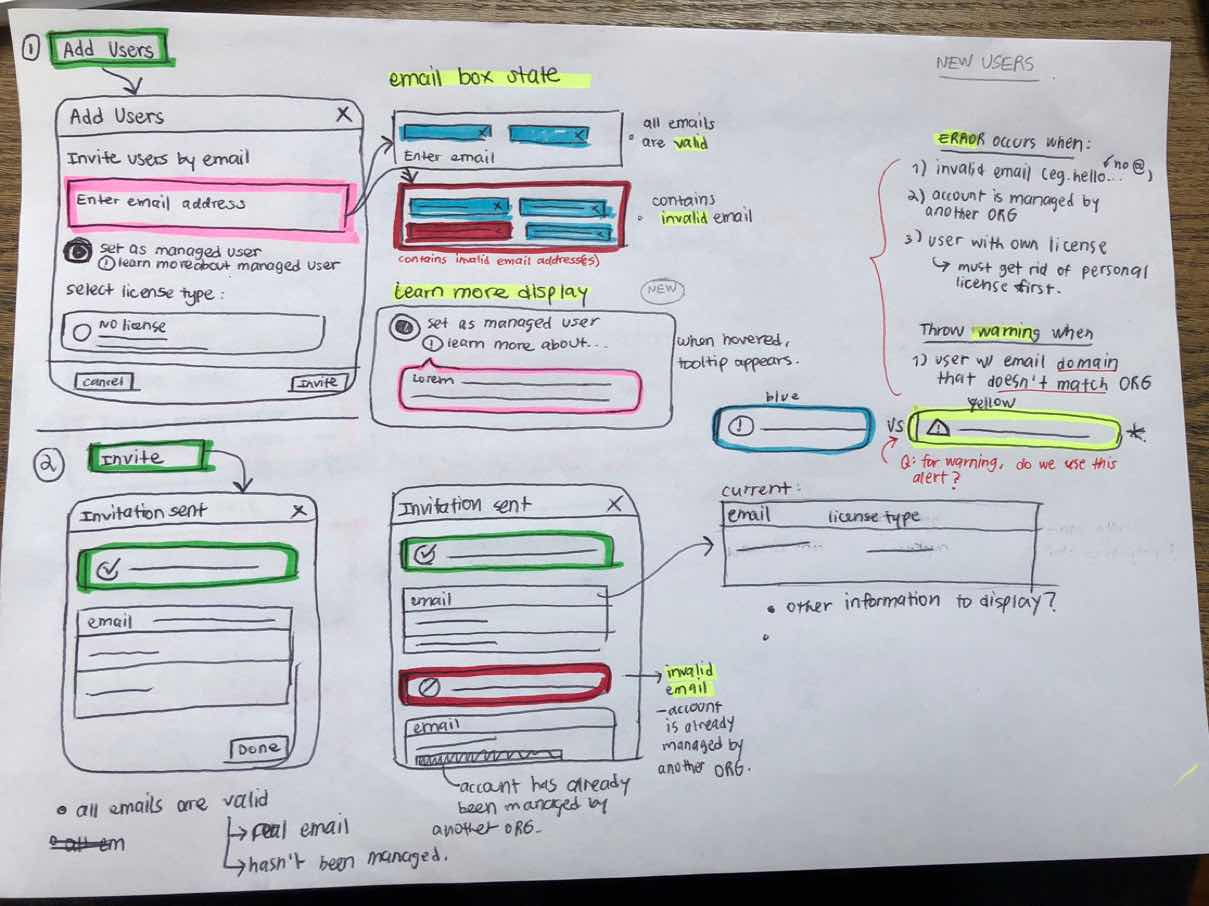 NEW USERS
1
Add Users
Add Users X
Invite users by email
Enter email address
set as managed user
learn more about managed user
select license type:
No license
Cancel Invite
email box state
x x
Enter email
• all emails
are valid
x x
x x
contains invalid email address(es)
• contains
invalid email
Learn more display
NEW
set as managed user
! learn more about...
Lorem
when hovered,
tooltip appears.
ERROR occurs when:
1) invalid email (eg. hello... no @)
2) account is managed by
another ORG
3) user with own license
↳ must get rid of personal
license first.
Throw warning when
1) user w/ email domain
that doesn't match ORG
blue
!
vs
yellow
!
*
Q: for warning, do we use this
alert?
2
Invite
Invitation sent X
email
Done
• all emails are valid
→ real email
→ hasn't been managed.
Invitation sent X
email
email
account has already
been managed by
another ORG.
→ invalid
email
- account
is already
managed by
another ORG.
current:
email license type
• other information to display?